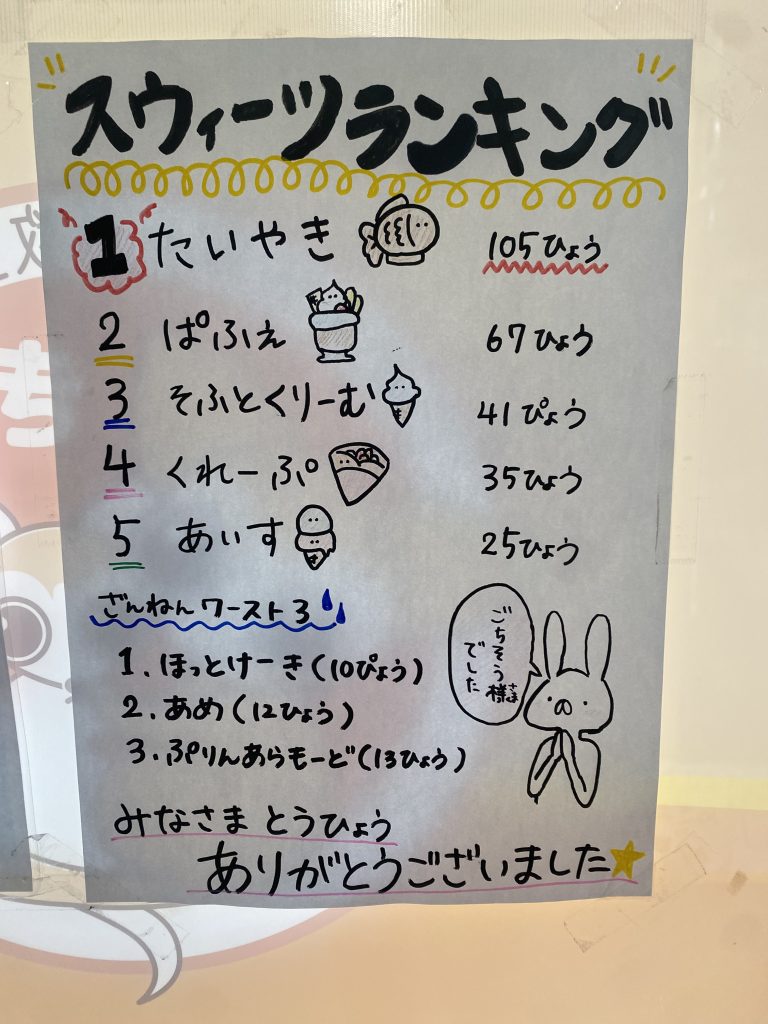 スウィーツランキング
1 たいやき 105ひょう
2 ぱふぇ 67ひょう
3 そふとくりーむ 41ぴょう
4 くれーぷ 35ひょう
5 あいす 25ひょう
ざんねんワースト3
1. ほっとけーき(10ぴょう)
2. あめ(12ひょう)
3. ぷりんあらもーど(13ひょう)
ごちそう様さま
でした
みなさま とうひょう
ありがとうございました